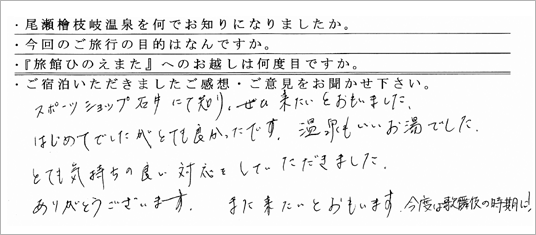 ・尾瀬檜枝岐温泉を何でお知りになりましたか。
・今回のご旅行の目的はなんですか。
・『旅館ひのえまた』へのお越しは何度目ですか。
・ご宿泊いただきましたご感想・ご意見をお聞かせ下さい。
スポーツショップ石井にて知り、ぜひ来たいとおもいました。
はじめてでしたがとても良かったです。温泉もいいお湯でした。
とても気持ちの良い対応をしていただきました。
ありがとうございます。また来たいとおもいます。今度は歌舞伎の時期に!